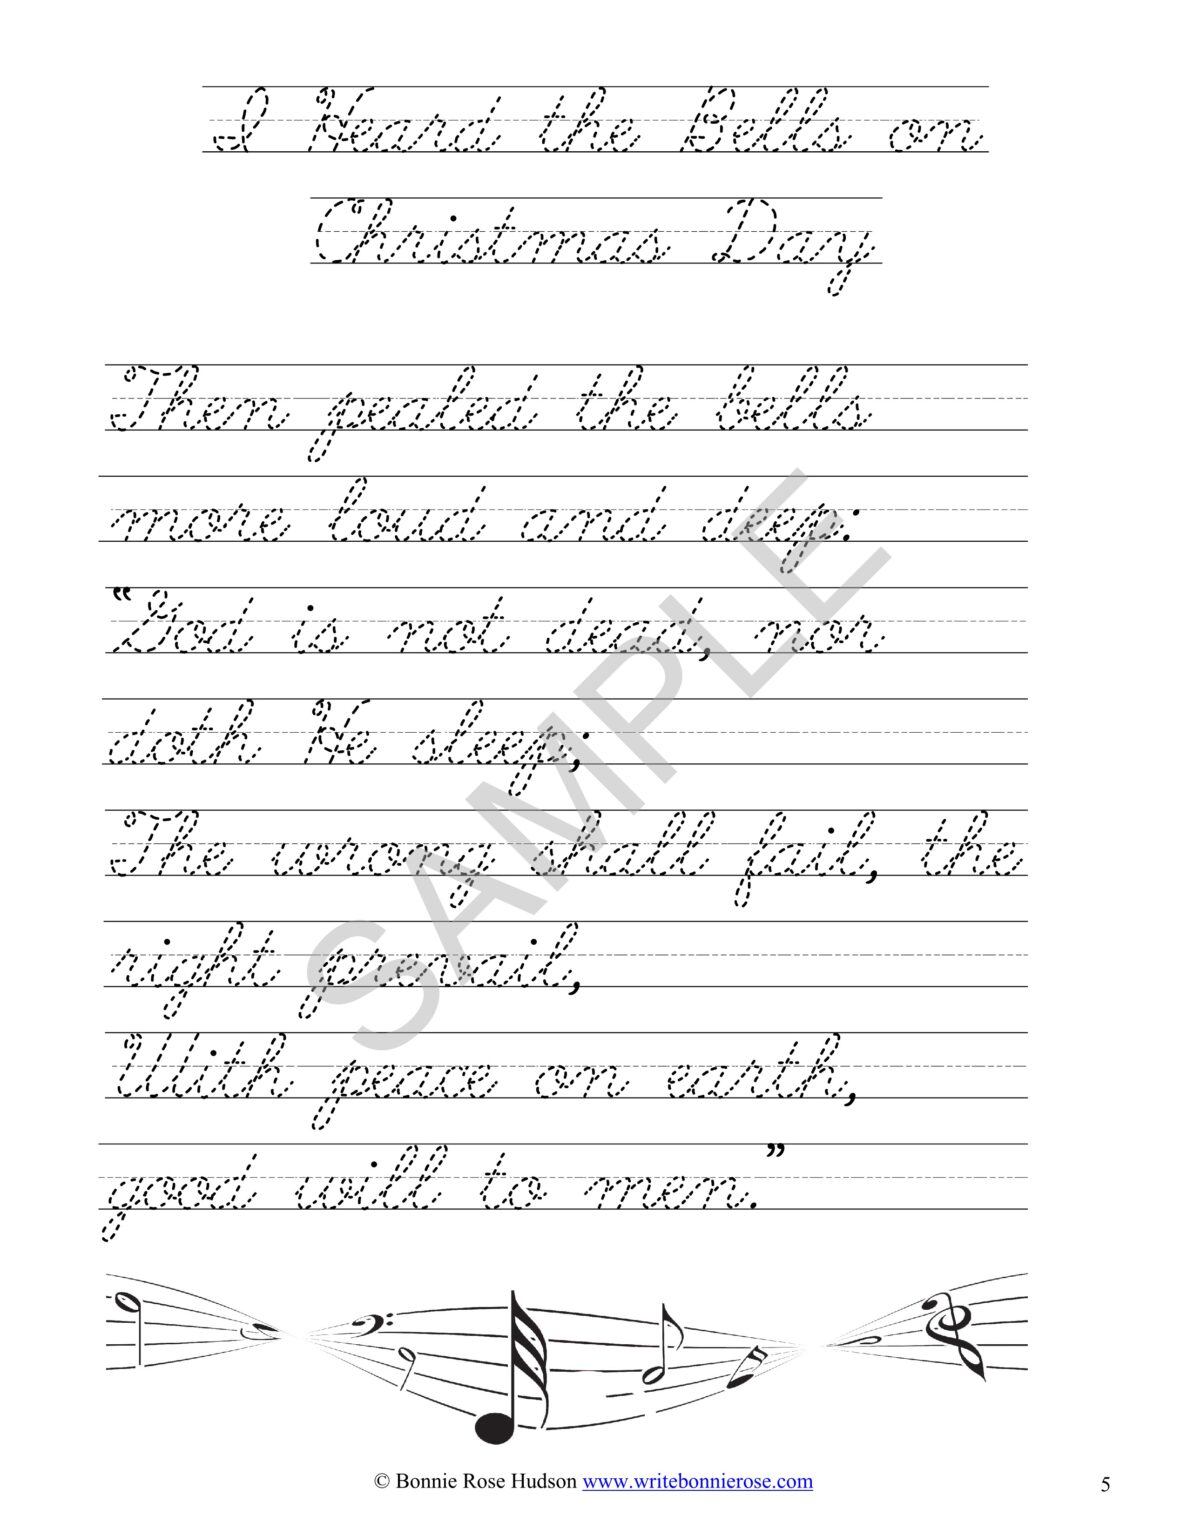 I Heard the Bells on
Christmas Day
Then pealed the bells
more loud and deep:
“God is not dead, nor
doth He sleep;
The wrong shall fail, the
right prevail,
With peace on earth,
good will to men.”
SAMPLE
© Bonnie Rose Hudson www.writebonnierose.com
5